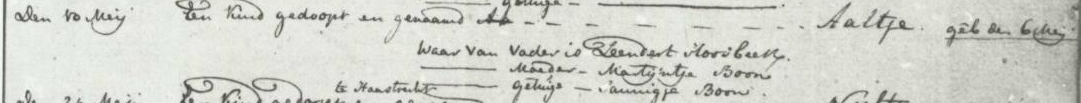 getuige —
Den 10 Meij Een Kind gedoopt en genaamd Aa - - - - - - - Aaltje. geb den 6 Meij
Waar van Vader is Leendert Slooibeek.
—— Moeder - Martijntje Boon
te Haastrecht —— getuige - Jannigje Boon.
Een Kind